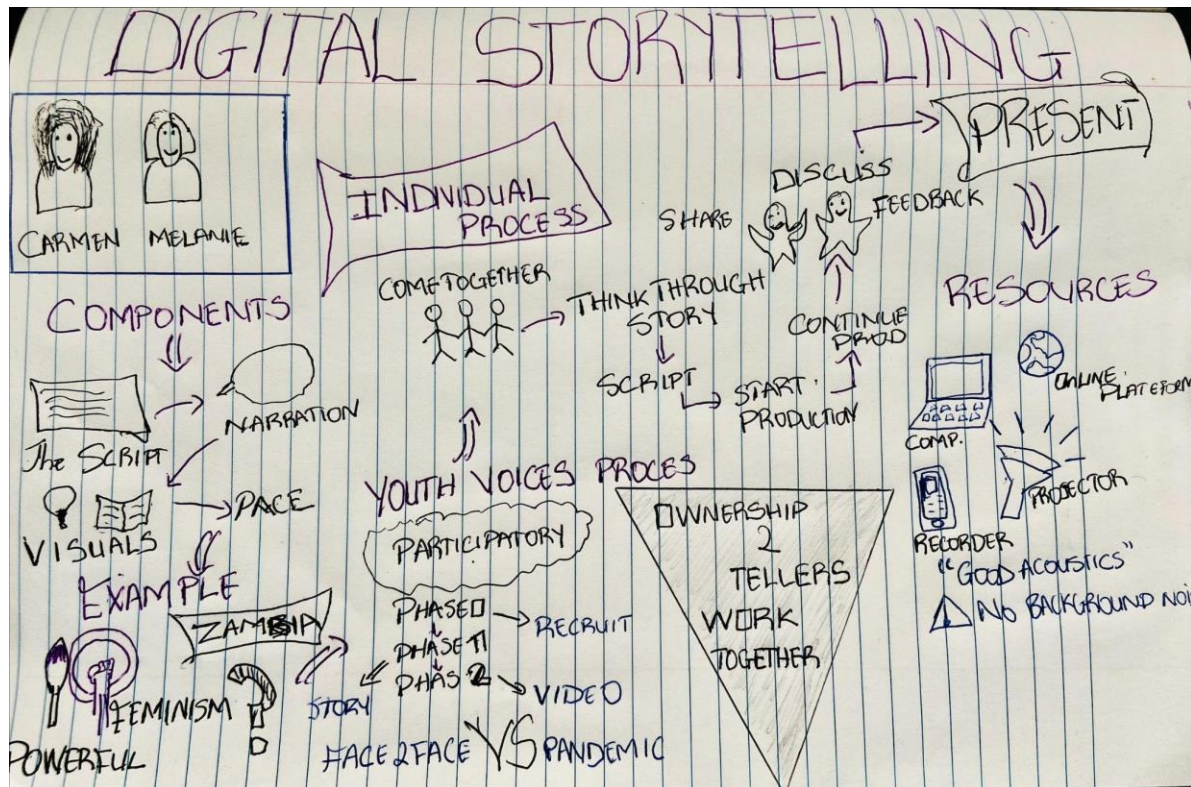 DIGITAL STORYTELLING
CARMEN
MELANIE
COMPONENTS
The SCRIPT
NARRATION
VISUALS
PACE
EXAMPLE
ZAMBIA
POWERFUL
FEMINISM
INDIVIDUAL
PROCESS
COME TOGETHER
THINK THROUGH
STORY
SCRIPT
START
PRODUCTION
CONTINUE
PROD
SHARE
DISCUSS
FEEDBACK
PRESENT
YOUTH VOICES PROCES
PARTICIPATORY
PHASE 0
RECRUIT
PHASE 1
STORY
PHAS 2
VIDEO
FACE 2 FACE VS PANDEMIC
OWNERSHIP
2
TELLERS
WORK
TOGETHER
RESOURCES
COMP.
ONLINE
PLATEFORM
RECORDER
PROJECTOR
"GOOD ACOUSTICS"
NO BACKGROUND NOI